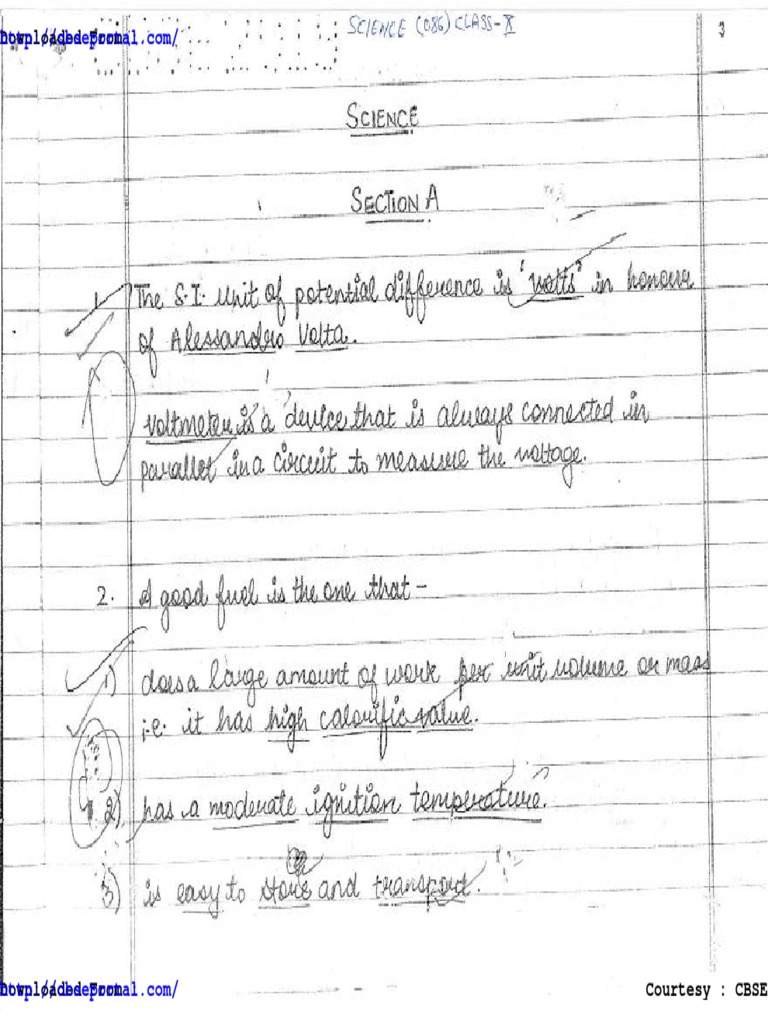 SCIENCE (086) CLASS-X
3
SCIENCE
SECTION A
1. The S.I. unit of potential difference is 'volts' in honour
of Alessandro Volta.
Voltmeter is a device that is always connected in
parallel in a circuit to measure the voltage.
2. A good fuel is the one that –
1) does a large amount of work per unit volume or mass
i.e. it has high calorific value.
2) has a moderate ignition temperature.
3) is easy to store and transport.
Courtesy : CBSE